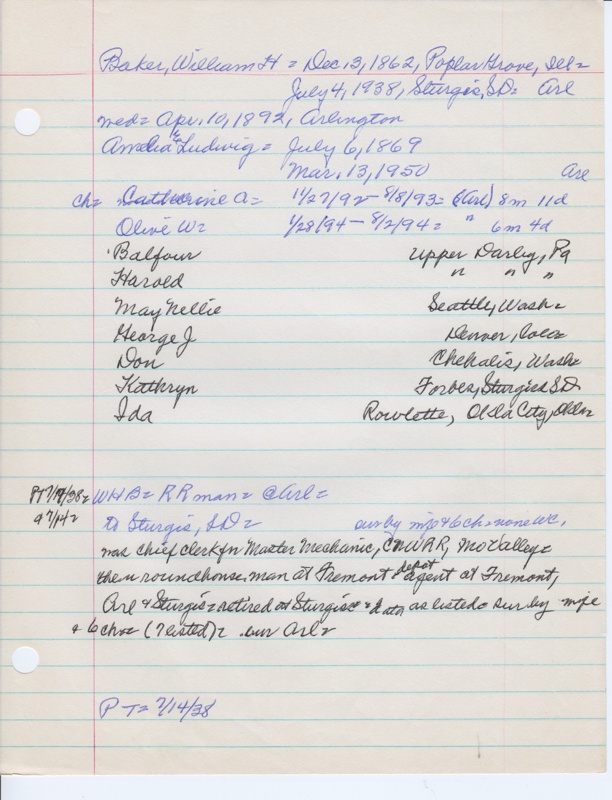 Baker, William H = Dec, 3, 1862, Poplar Grove, Ill =
July 4, 1938, Sturgis, SD = Arl
med = Apr, 10, 1892, Arlington
Amelia Ludwig = July 6, 1869
Mar, 13, 1950 Arl
ch = Catherine A = 11/27/92 - 8/8/93 = (Arl) 8m 11d
Olive W = 1/28/94 - 8/2/94 = " 6m 4d
Balfour Upper Darby, Pa
Harold " " "
May Nellie Seattle, Wash =
George J Denver, Colo =
Don Chehalis, Wash =
Kathryn Forbes, Sturgis SD
Ida Rowlette, Okla City, Okla
PT 7/14/38 = WHB = RR man = @ Arl =
9 7/14 =
to Sturgis, SD = sur by & 6 ch = none WC,
was chief clerk fn Master Mechanic, CNWRR, Mo Valley =
then roundhouse man at Fremont = depot agent at Fremont,
Arl & Sturgis = retired at Sturgis = as listed = sur by wife
& 6 ch = (7 listed) = bur Arl =
PT = 7/14/38